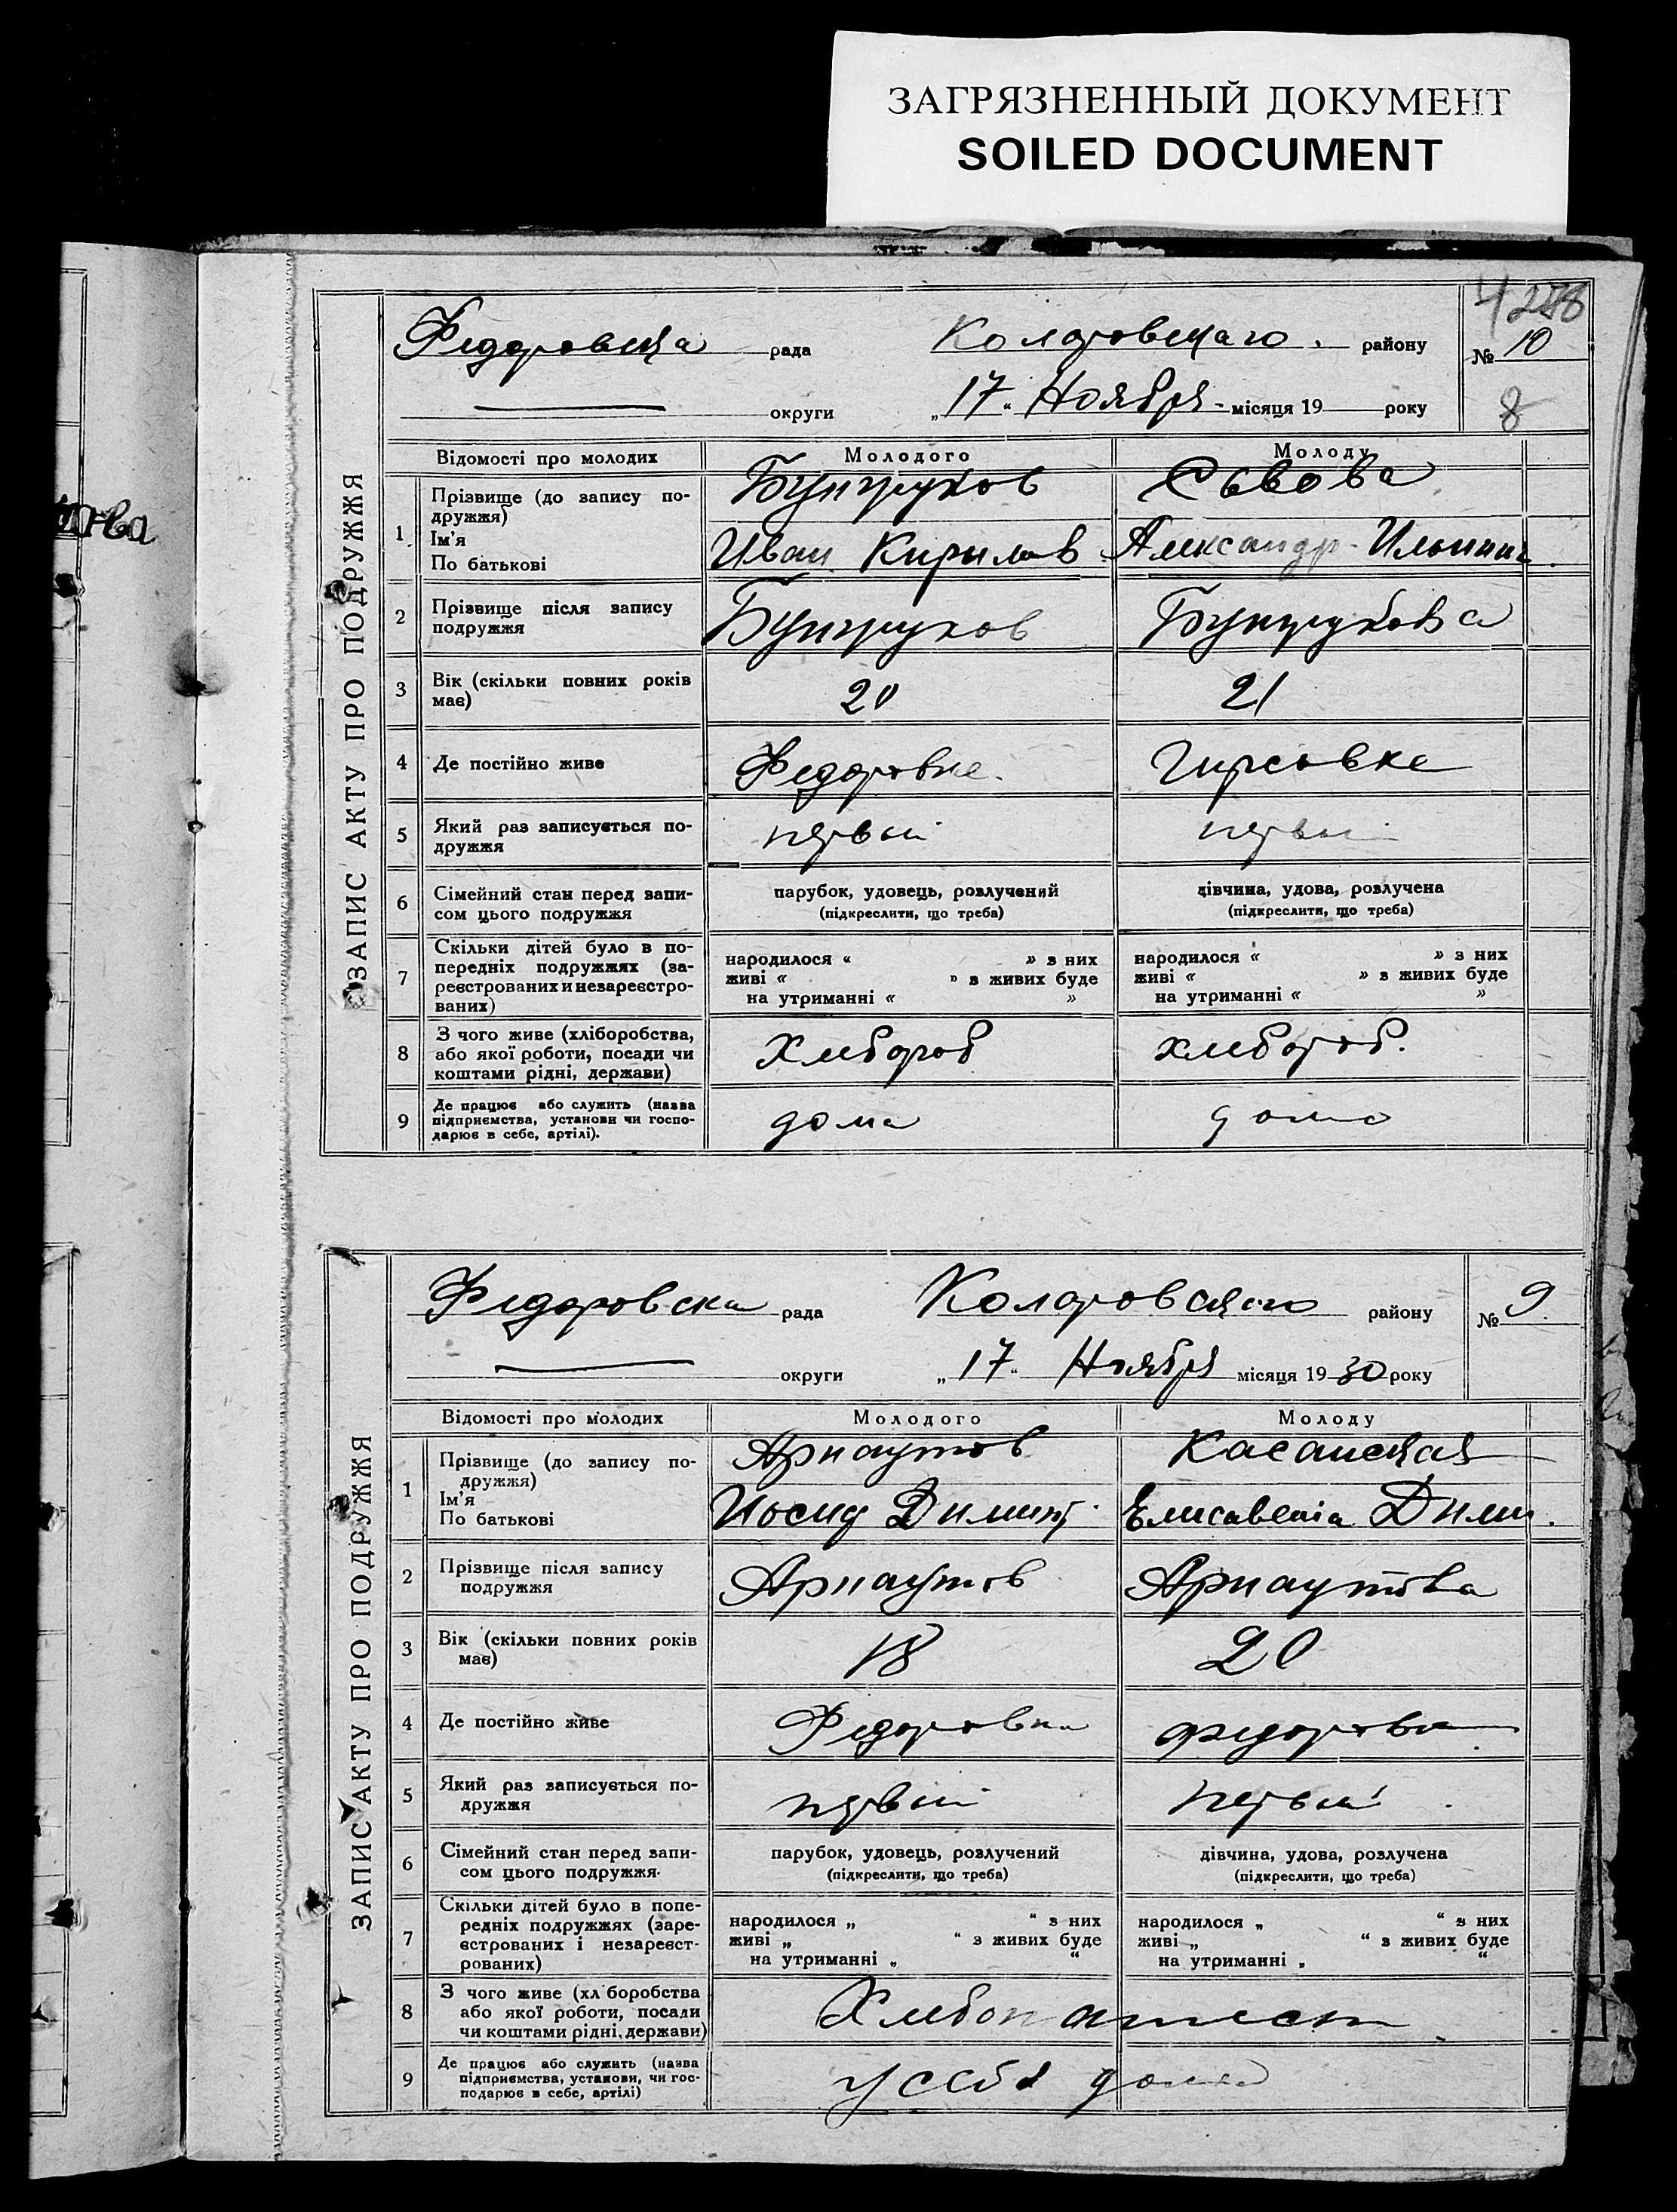 ЗАГРЯЗНЕННЫЙ ДОКУМЕНТ
SOILED DOCUMENT
ЗАПИС АКТУ ПРО ПОДРУЖЖЯ
Федоровска рада Коларовскаго району № 10
округи „17“ Ноября місяця 19 року
8
Відомості про молодих Молодого Молоду
1 Прізвище (до запису по-
дружжя)
Ім'я
По батькові
Иван Кирилов Александр Ильинич
2 Прізвище після запису
подружжя
3 Вік (скільки повних років
має)
20 21
4 Де постійно живе Федоровке Гирсовке
5 Який раз записується по-
дружжя
первий первий
6 Сімейний стан перед запи-
сом цього подружжя
парубок, удовець, розлучений дівчина, удова, розлучена
(підкреслити, що треба) (підкреслити, що треба)
7 Скільки дітей було в по-
передніх подружжях (за-
реєстрованих и незареєстро-
ваних)
народилося « » з них народилося « » з них
живі « » з живих буде живі « » з живих буде
на утриманні « » на утриманні « »
8 З чого живе (хліборобства,
або якої роботи, посади чи
коштами рідні, держави)
Хлебороб хлебороб.
9 Де працює або служить (назва
підприємства, установи чи госпо-
дарює в себе, артілі).
дома дома
ЗАПИС АКТУ ПРО ПОДРУЖЖЯ
Федоровска рада Коларовскаго району № 9
округи „17“ Ноября місяця 1930 року
Відомості про молодих Молодого Молоду
1 Прізвище (до запису по-
дружжя)
Ім'я
По батькові
Арнаутов Касанская
Иосиф Димит. Елисавета Дими.
2 Прізвище після запису
подружжя
Арнаутов Арнаутова
3 Вік (скільки повних років
має)
18 20
4 Де постійно живе Федоровка Федоровка
5 Який раз записується по-
дружжя
первий первий
6 Сімейний стан перед запи-
сом цього подружжя
парубок, удовець, розлучений дівчина, удова, розлучена
(підкреслити, що треба) (підкреслити, що треба)
7 Скільки дітей було в попе-
редніх подружжях (заре-
єстрованих і незареєст-
рованих)
народилося „ “ з них народилося „ “ з них
живі „ “ з живих буде живі „ “ з живих буде
на утриманні „ “ на утриманні „ “
8 З чого живе (хл боробства
або якої роботи, посади
чи коштами рідні, держави)
9 Де працює або служить (назва
підприємства, установи, чи гос-
подарює в себе, артілі)
у себя дома